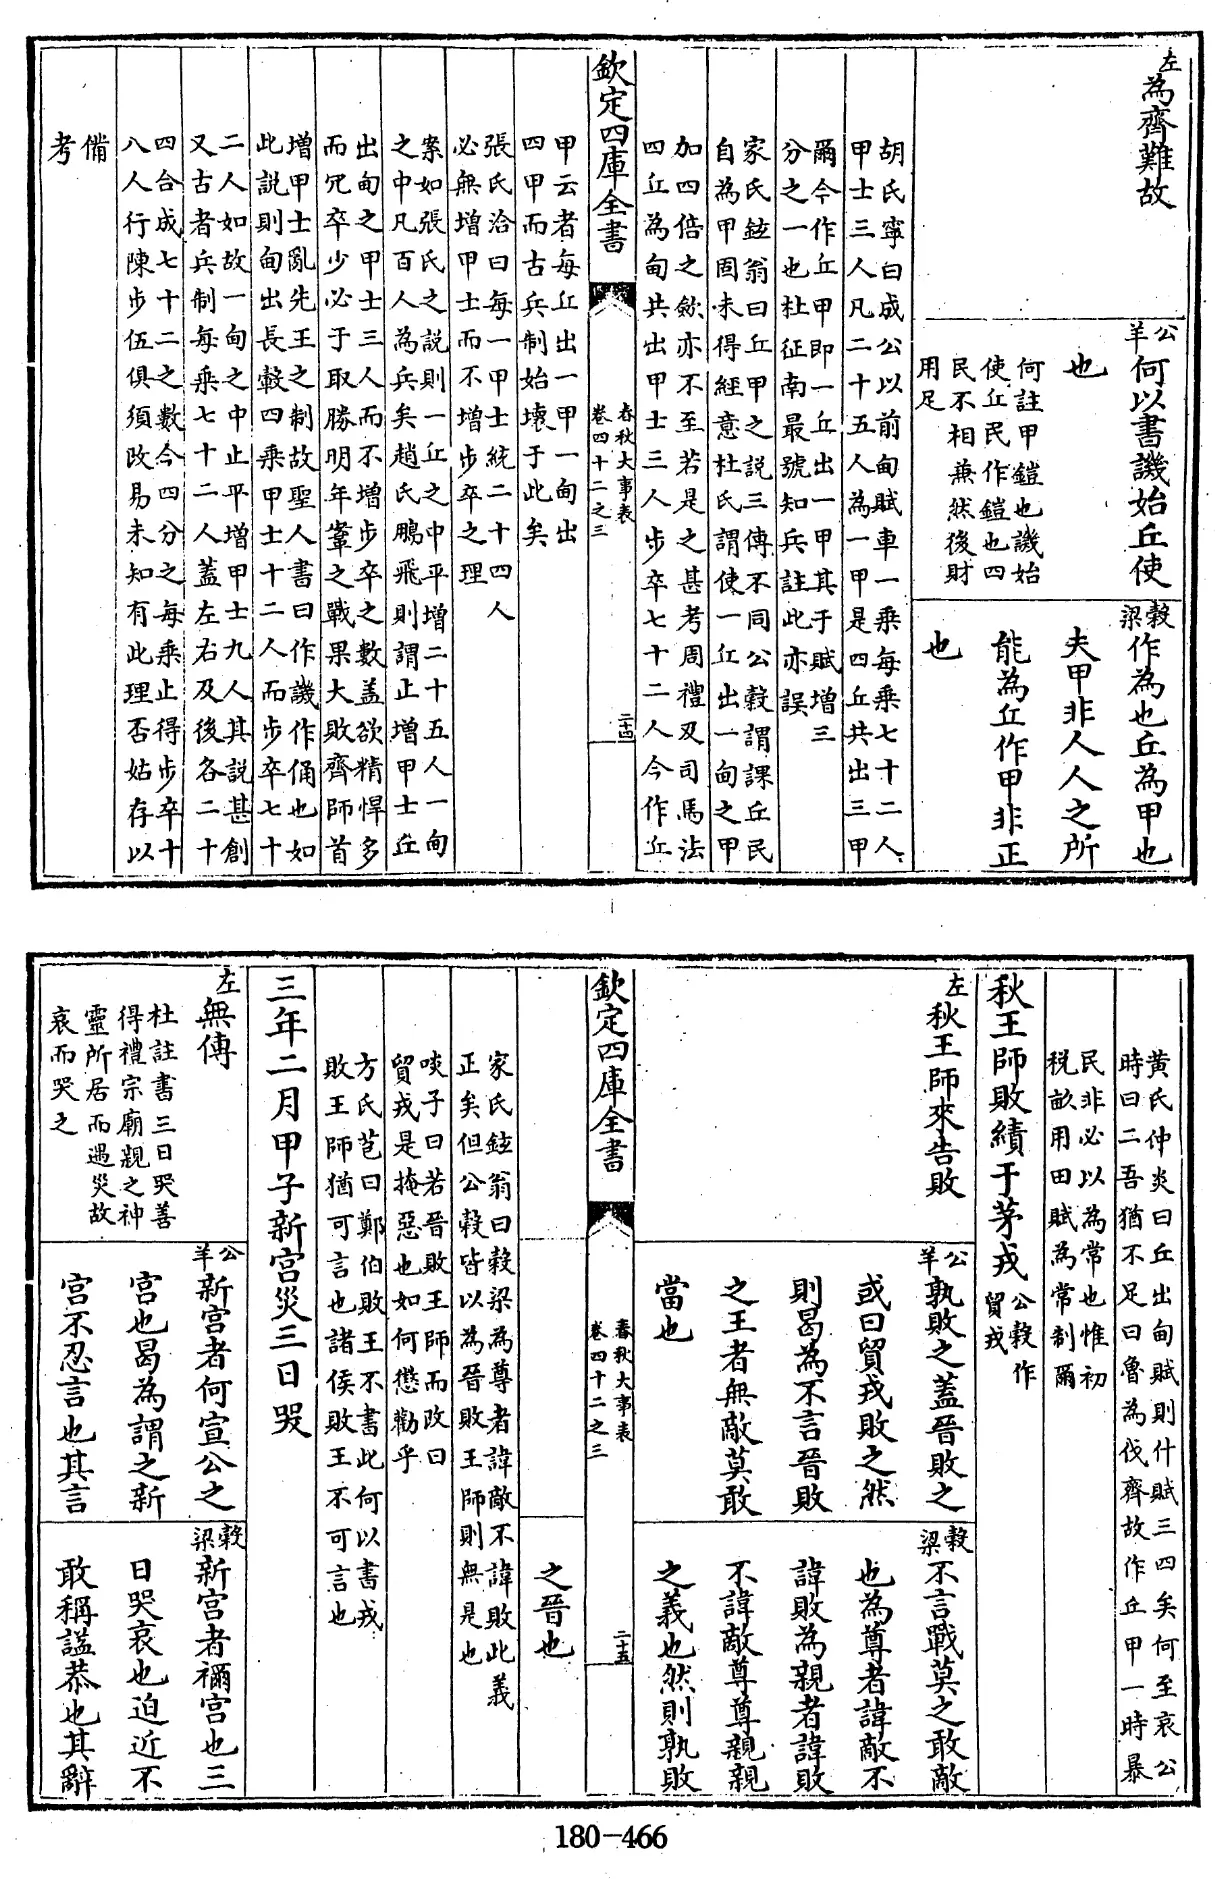 左為齊難故
公羊何以書譏始丘使
也
何註甲鎧也譏始
使丘民作鎧也四
民不相兼然後財
用足
穀梁作為也丘為甲也
夫甲非人人之所
能為丘作甲非正
也
胡氏寧曰成公以前甸賦車一乘每乘七十二人
甲士三人凡二十五人為一甲是四丘共出三甲
爾今作丘甲即一丘出一甲其于賦增三
分之一也杜征南最號知兵註此亦誤
家氏鉉翁曰丘甲之說三傳不同公穀謂課丘民
自為甲固未得經意杜氏謂使一丘出一甸之甲
加四倍之斂亦不至若是之甚考周禮及司馬法
四丘為甸共出甲士三人步卒七十二人今作丘
欽定四庫全書
春秋大事表
卷四十二之三
二十四
甲云者每丘出一甲一甸出
四甲而古兵制始壞于此矣
張氏洽曰每一甲士統二十四人
必無增甲士而不增步卒之理
案如張氏之說則一丘之中平增二十五人一甸
之中凡百人為兵矣趙氏鵬飛則謂止增甲士丘
出甸之甲士三人而不增步卒之數蓋欲精悍多
而冗卒少必于取勝明年鞌之戰果大敗齊師首
增甲士亂先王之制故聖人書曰作譏作俑也如
此說則甸出長轂四乘甲士十二人而步卒七十
二人如故一甸之中止平增甲士九人其說甚創
又古者兵制每乘七十二人蓋左右及後各二十
四合成七十二之數今四分之每乘止得步卒十
八人行陳步伍俱須改易未知有此理否姑存以
備
考
黃氏仲炎曰丘出甸賦則什賦三四矣何至哀公
時曰二吾猶不足曰魯為伐齊故作丘甲一時暴
民非必以為常也惟初
稅畝用田賦為常制爾
秋王師敗績于茅戎公穀作貿戎
左秋王師來告敗
公羊孰敗之蓋晉敗之
或曰貿戎敗之然
則曷為不言晉敗
之王者無敵莫敢
當也
穀梁不言戰莫之敢敵
也為尊者諱敵不
諱敗為親者諱敗
不諱敵尊尊親親
之義也然則孰敗
欽定四庫全書
春秋大事表
卷四十二之三
二十五
之晉也
家氏鉉翁曰穀梁為尊者諱敵不諱敗此義
正矣但公穀皆以為晉敗王師則無是也
啖子曰若晉敗王師而改曰
貿戎是掩惡也如何懲勸乎
方氏苞曰鄭伯敗王不書此何以書戎
敗王師猶可言也諸侯敗王不可言也
三年二月甲子新宮災三日哭
左無傳
杜註書三日哭善
得禮宗廟親之神
靈所居而遇災故
哀而哭之
公羊新宮者何宣公之
宮也曷為謂之新
宮不忍言也其言
穀梁新宮者禰宮也三
日哭哀也迫近不
敢稱諡恭也其辭
180-466